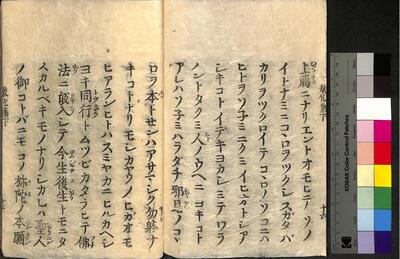 上﨟ニナリエントオモヒテソノ
イトナミニコヽロヲツクシスガタハ
カリヲツクロイテコヽロノソコニハ
ヒトヲソ子ミニクミイヒカトシア
シキコトイデキヨカレシテワラ
ノントタクミ人ノウヘニヨキコト
アレハソ子ミハラダチ邪見ノコヽ
ロヲ本トセンハアサマシク勿躰ナ
キコトナリモシカヤウノヒガオモ
ヒアランヒトハスミヤカニヒルカヘシ
ヨキ同行トムツビカタラヒテ佛
法ニ皈入シテ今生後生トモニタ
スカルベキモノナリシカレハ聖人
ノ御コトバニモコノ弥陀ノ本願
KODAK Color Control Patches